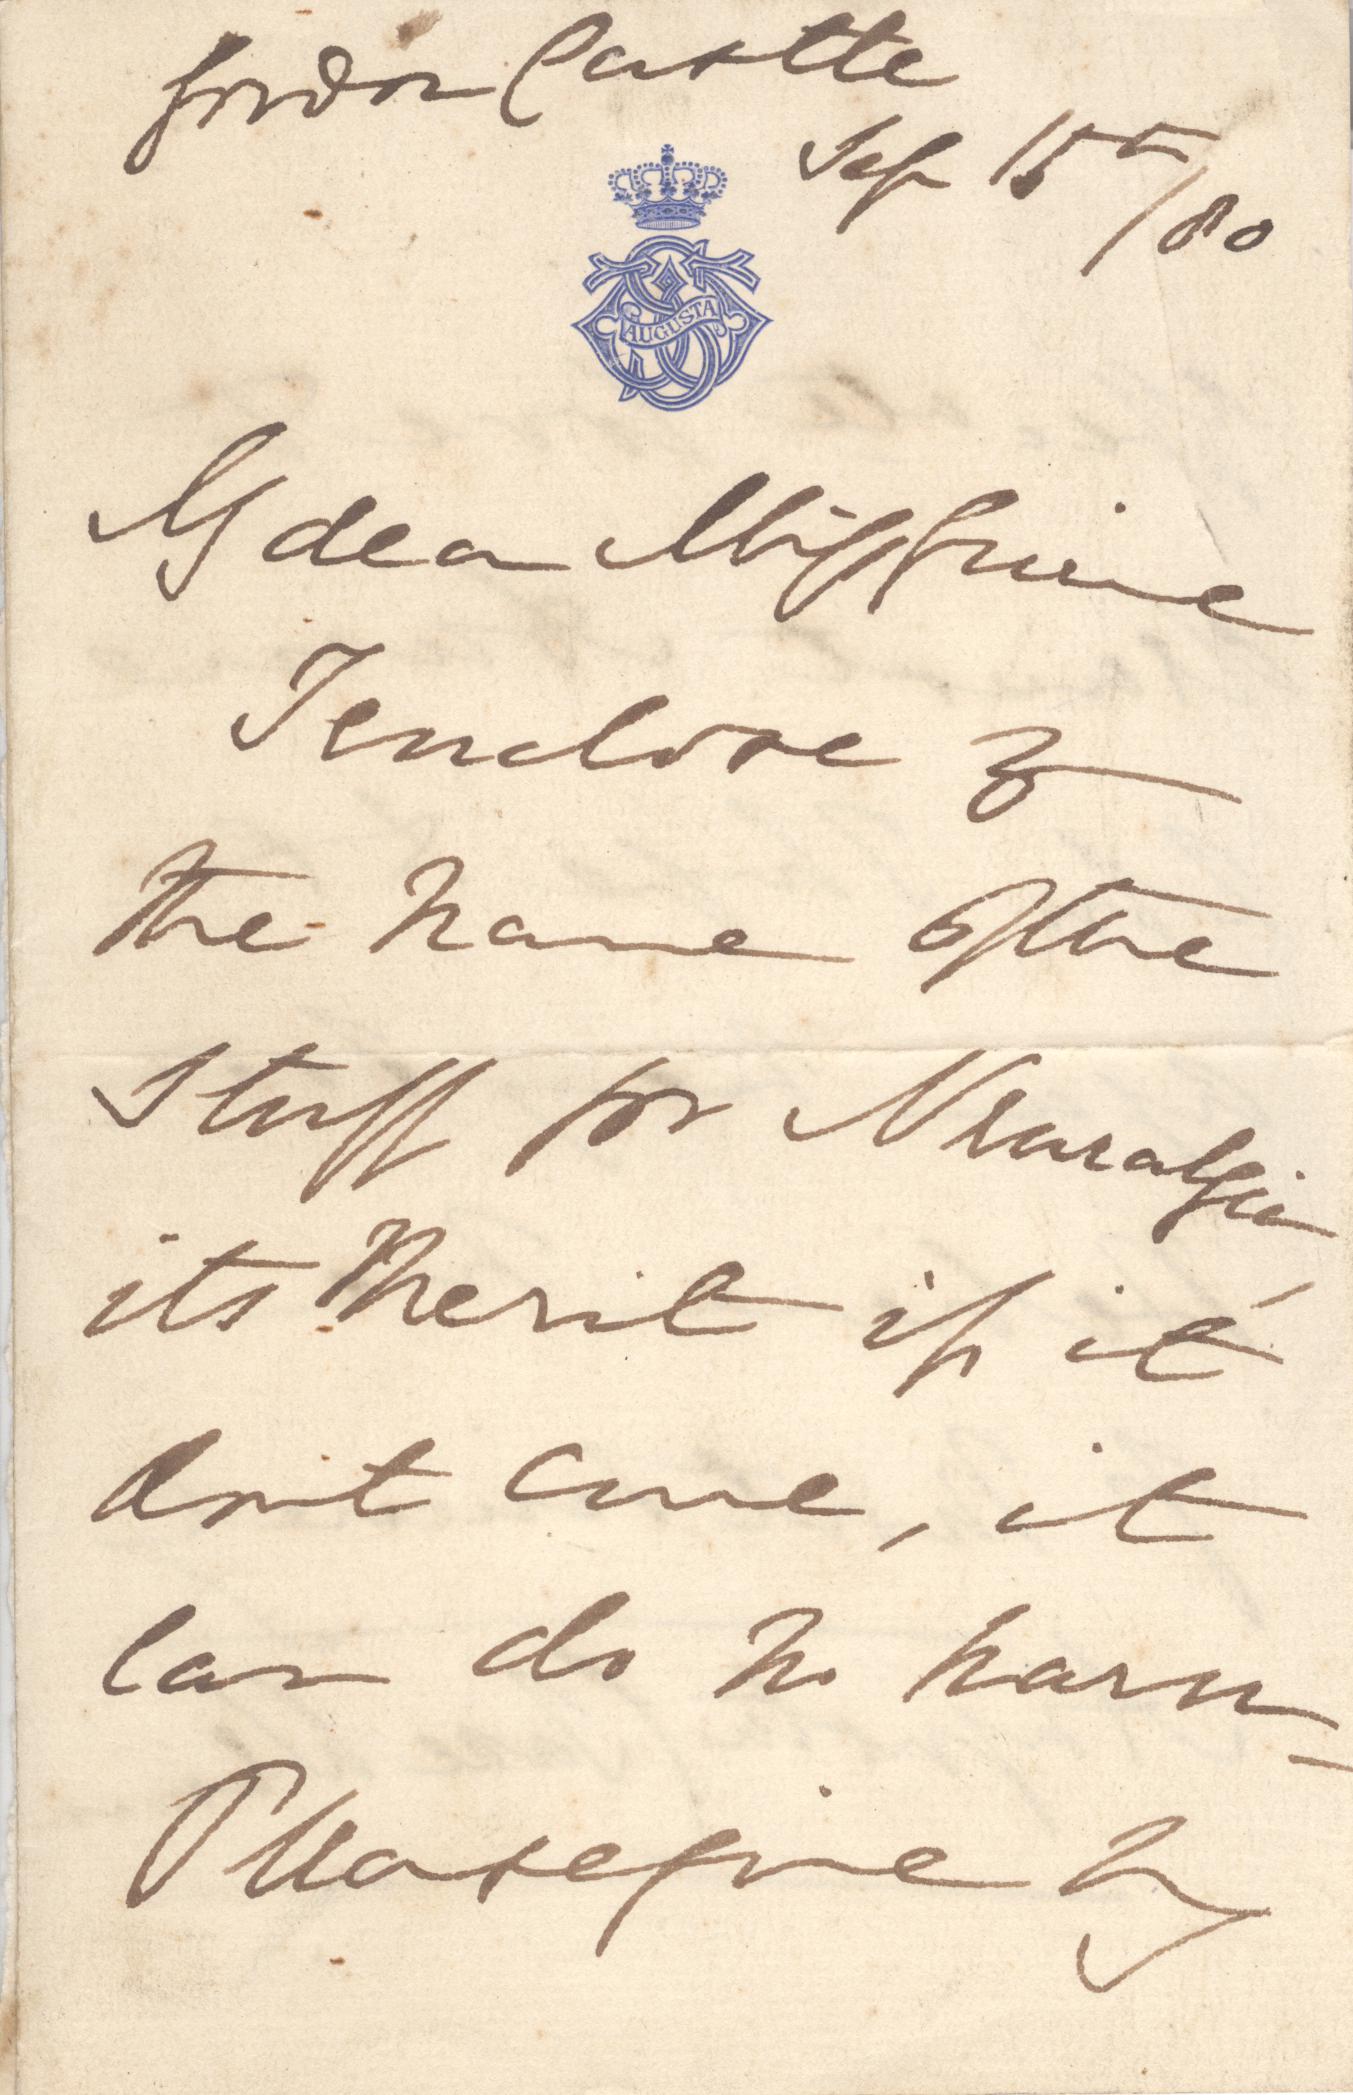 Gordon Castle
Sep 15th/80
AUGUSTA
My dear Miss
I enclose
the name of the
stuff for Neuralgia
its Merit if it
dont cure, it
can do no harm –
Please give my